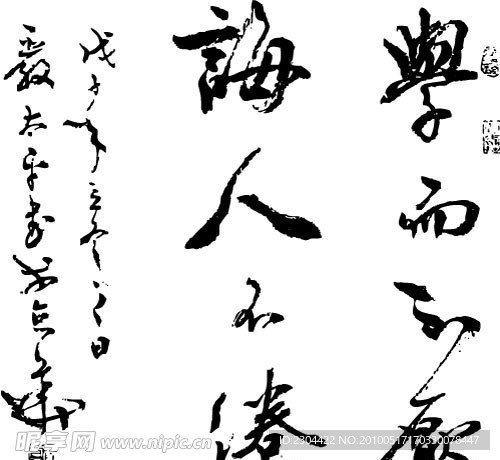 學而不厭
誨人不倦
戊子年立冬之日
嚴太平書於
昵享网 www.nipic.cn
ID:2304422 NO:20100517170330078447